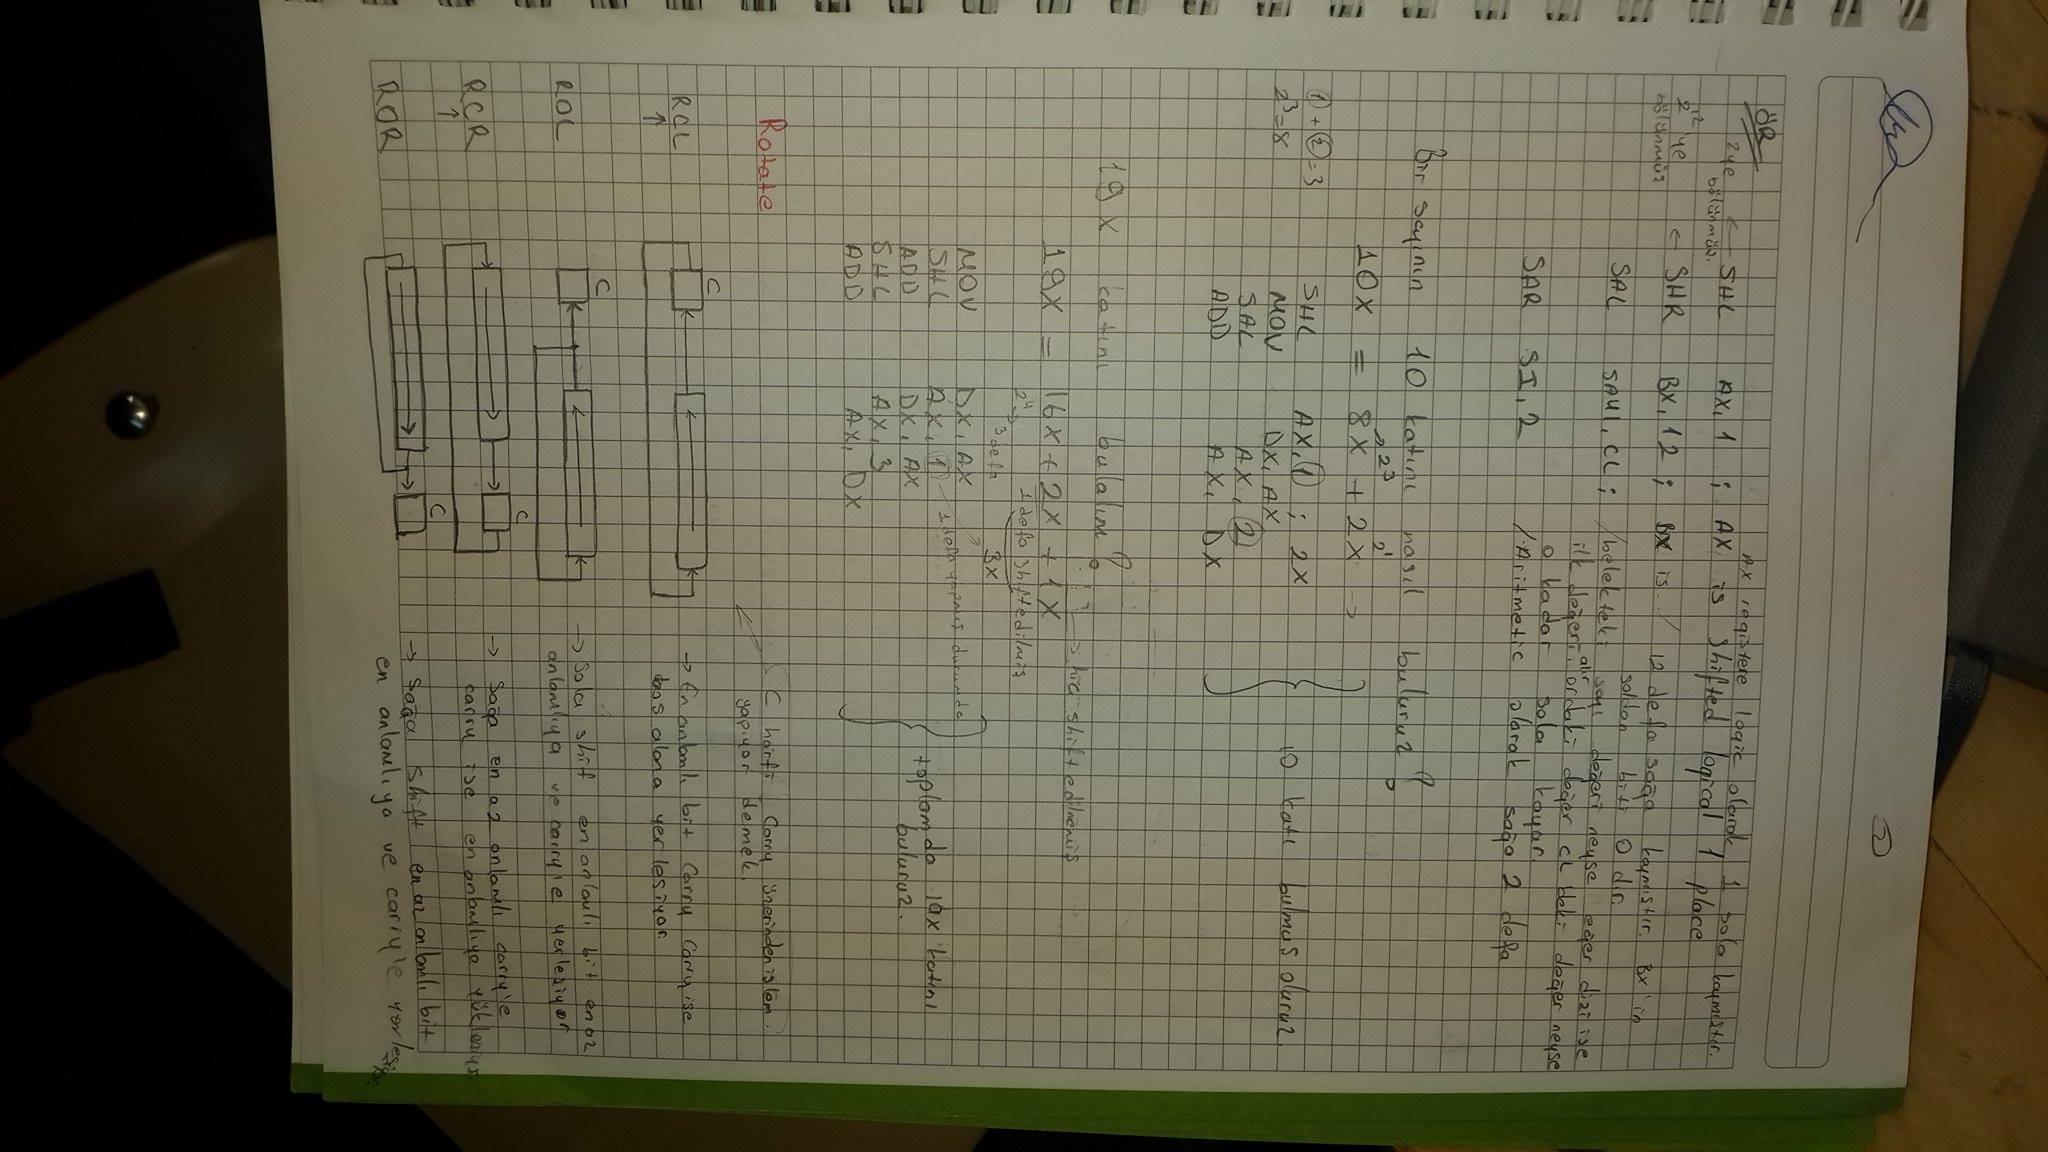 2
ÖR
AX registere logic olarak 1 sola kaymıştır.
2ye bölünmüş. ← SHL AX, 1 ; AX is shifted logical 1 place
2^12 ye bölünmüş ← SHR BX, 12 ; BX is / 12 defa sağa kaymıştır. BX'in
soldan biti 0 dır.
SAL SAYI, CL ; /bellekteki sayı değeri neyse eğer dizi ise
ilk değeri alır ordaki değer CL'deki değer neyse
o kadar sola kayar
SAR SI, 2 /Aritmetic olarak sağa 2 defa
Bir sayının 10 katını nasıl buluruz?
→2^3 2^1
10X = 8X + 2X →
①+②=3 SHL AX, ① ; 2X
2^3=8 MOV DX, AX
10 katı bulmuş oluruz
SAL AX, ②
ADD AX, DX
19X katını bulalım?
→ hiç shift edilmemiş
19X = 16X + 2X + 1X
2^4→ 3 defa 1 defa shift edilmiş
3X
MOV DX, AX
SHL AX, ① 1 defa yapmış durumda
ADD DX, AX
toplamda 19x katını
buluruz.
SHL AX, 3
ADD AX, DX
Rotate
C harfi Carry üzerinden işlem
yapıyor demek
C
RCL → En anlamlı bit carry carry ise
boş alana yerleşiyor.
C
ROL → Sola shift en anlamlı bit en az
anlamlıya ve carry'e yerleşiyor
C
RCR → Sağa en az anlamlı carry'e
carry ise en anlamlıya
C
ROR → Sağa shift en az anlamlı bit
en anlamlıya ve carry'e yerleşiyor